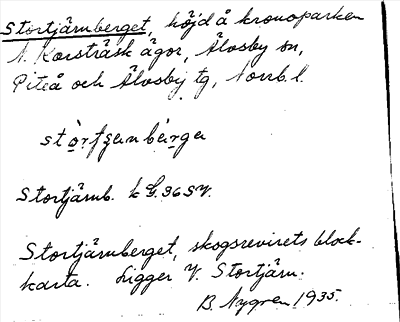 Stortjärnberget, höjd å kronoparken
N. Korsträsk ägor, Älvsby sn,
Piteå och Älvsby tg, Norrb. l.
Stortjärnb. k G. 36 S V.
Stortjärnberget, skogsrevirets block-
karta. Ligger V. Stortjärn.
B. Nygren 1935.